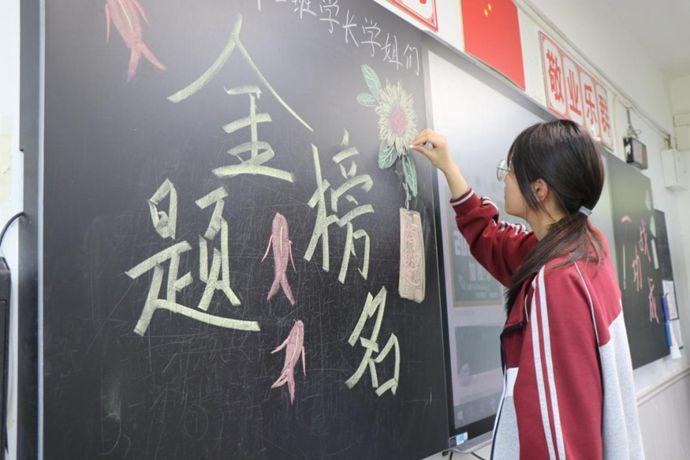 班学长学姐们
金榜
题名
敬业乐群